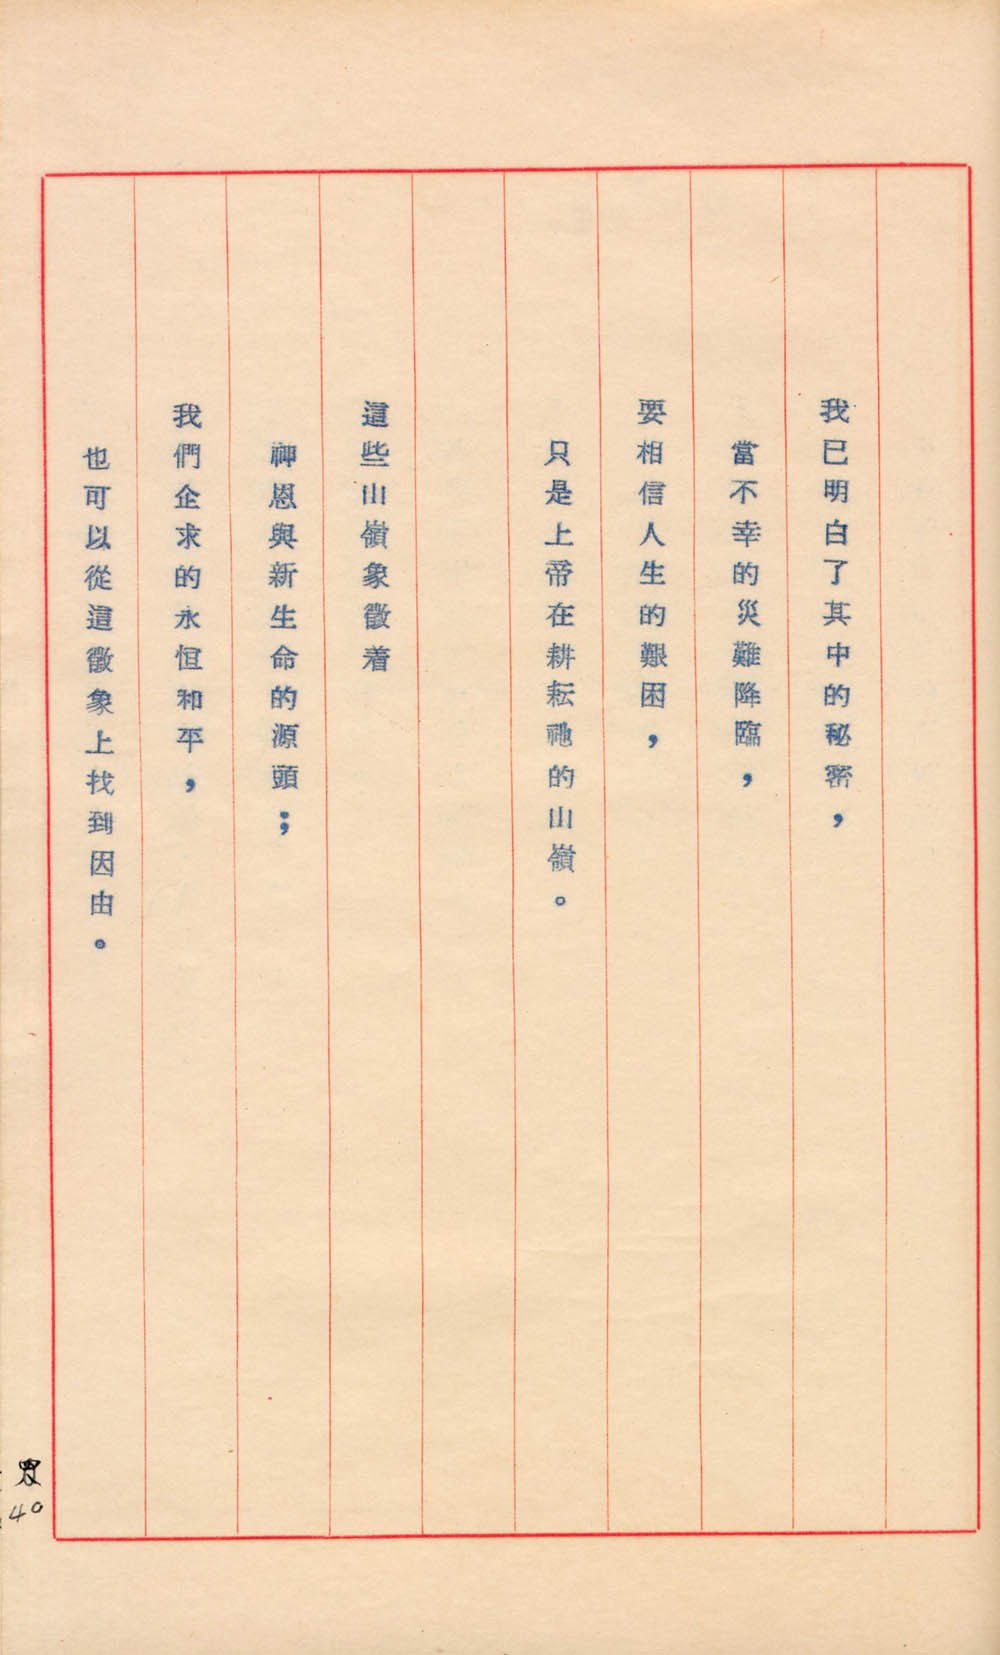 我已明白了其中的秘密，
當不幸的災難降臨，
要相信人生的艱困，
只是上帝在耕耘祂的山嶺。
這些山嶺象徵着
神恩與新生命的源頭；
我們企求的永恒和平，
也可以從這徵象上找到因由。
40